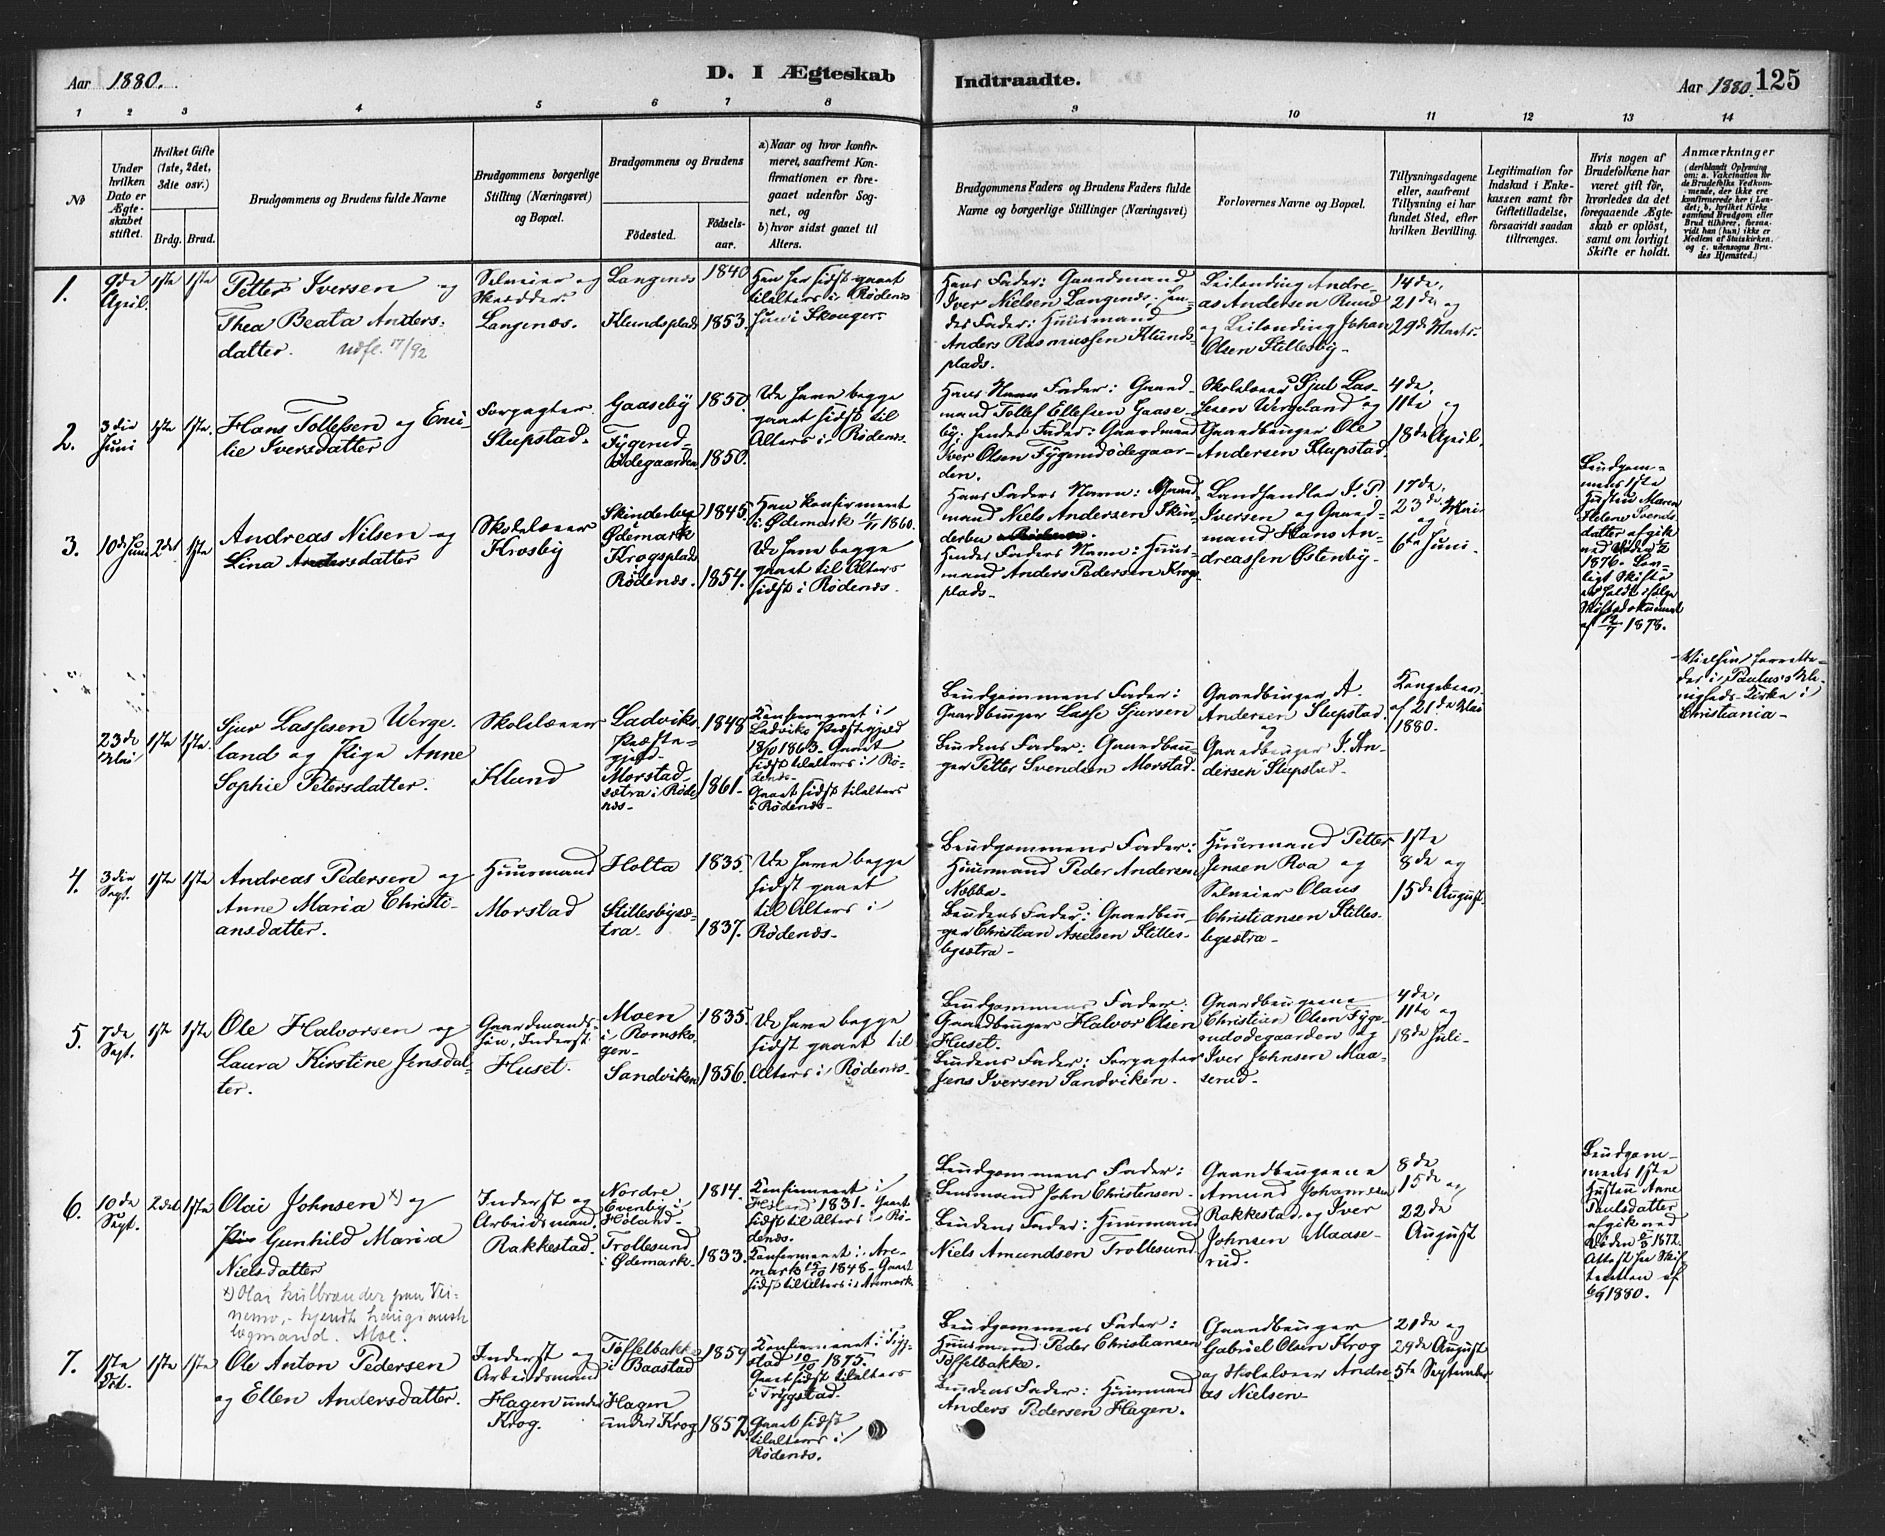 Aar 1880.
D. I Ægteskab
Indtraadte.
Aar 1880. 125
1 2 3 4 5 6 7 8 9 10 11 12 13 14
No
Under hvilken Dato er Ægteskabet stiftet.
Hvilket Gifte (1ste, 2det, 3die osv.)
Brdg. Brud.
Brudgommens og Brudens fulde Navne
Brudgommens borgerlige Stilling (Næringsvei) og Bopæl.
Brudgommens og Brudens
Fødested.
Fødselsaar.
a) Naar og hvor konfirmeret, saafremt Konfirmationen er foregaaet udenfor Sognet, og
b) hvor sidst gaaet til Alters.
Brudgommens Faders og Brudens Faders fulde Navne og borgerlige Stillinger (Næringsvei)
Forlovernes Navne og Bopæl.
Tillysningsdagene eller, saafremt Tillysning ei har fundet Sted, efter hvilken Bevilling.
Legitimation for Indskud i Enkekassen samt for Giftetilladelse, forsaavidt saadan tiltrænges.
Hvis nogen af Brudefolkene har været gift før, hvorledes da det foregaaende Ægteskab er opløst, samt om lovligt Skifte er holdt.
Anmærkninger
1.
9de April
1ste 1ste
Petter Iversen og
Thea Beata Anders-
datter. udfl. 17/92
Selveier og
Skrædder
Langenæs.
Langenæs
Klundsplads
1840
1853.
Han her sidst gaaet
tilalters i Rødenæs
hun i Skouger.
Hans Fader: Gaardmand
Iver Nielsen Langenæs, hen-
des Fader: Huusmand
Anders Rasmussen Klunds-
plads.
Leilending Andre-
as Andersen Rund
og Leilending Johan
Olsen Stillesby.
14de,
21de og
29de Marts.
2.
3die Juni
1ste 1ste.
Hans Tollefsen og Emi-
lie Iversdatter
Forpagter
Slupstad.
Gaaseby
Fygerud-
ødegaarden
1850.
1850.
De have begge
gaaet sidst til
Alters i Rødenæs.
Hans Fader: Gaard-
mand Tollef Ellefsen Gaase-
by; hendes Fader: Gaardmand
Iver Olsen Fygerudødegaar-
den.
Skolelærer Sjul Las-
sesen Wergeland og
Gaardbruger Ole
Andersen Slupstad.
4de,
11te og
18de April.
3.
10de Juni
2det 1ste
Andreas Nilsen og
Lina Andersdatter
Skolelærer
Krosby
Skinderby
Ødemark
Krogsplads
Rødenæs.
1845.
1854.
Han konfirmeret
i Ødemark 1860.
De have begge
gaaet til Alters
sidst i Rødenæs.
Hans Faders Navn: Gaard-
mand Niels Andersen Skin-
derbu
Hendes Faders Navn: Huus-
mand Anders Pedersen Krogs-
plads.
Landhandler I. P.
Iversen og Gaard-
mand Hans An-
dreassen Østenby.
17de,
23de Mai
og
6te Juni.
Brudgom-
mens 1ste
Hustru Maren
Helene Svends-
datter afgik
ved Døden
1876. Lov-
ligt Skifte
er holdt ifølge
Skiftedokument
af 12/7 1878.
23de Mai
1ste 1ste.
Sjur Lassesen Werge-
land og Pige Anne
Sophie Petersdatter.
Skolelærer
Klund
Ladviks
Præste-
gjeld.
Morstad-
sætra i Røde-
næs.
1848
1861.
Konfirmeret i
Ladviks Præstegjeld
1863. Gaaet
sidst tilalters i Rø-
denæs.
Gaaet sidst tilalters
i Rødenæs.
Brudgommens Fader:
Gaardbruger Lasse Sjursen
Brudens Fader: Gaardbru-
ger Petter Svendsen Morstad.
Gaardbruger A.
Andersen Slupstad.
og
Gaardbruger I. An-
dersen Slupstad.
Kongebrev
af 21de Mai
1880.
Vielsen forrette-
des i Paulus's Me-
nigheds Kirke i
Christiania.
4.
3die Sept.
1ste 1ste
Andreas Pedersen og
Anne Maria Christi-
ansdatter.
Huusmand
Morstad
Holta
Stillesbysæ-
tra.
1835.
1837.
De have begge
sidst gaaet
til Alters i
Rødenæs.
Brudgommens Fader:
Huusmand Peder Andersen
Nobba.
Brudens Fader: Gaardbru-
ger Christian Axelsen Stilles-
bysætra.
Huusmand Petter
Jensen Roa og
Selveier Olaus
Christiansen Stilles-
bysætra.
1ste
8de og
15de August.
5.
7de Sept.
1ste 1ste
Ole Halvorsen og
Laura Kirstine Jensdat-
ter.
Gaardmands-
søn, Inderst
Huset.
Moen
i Romsko-
gen.
Sandviken
1835.
1856.
De have begge
sidst gaaet til
Alters i Rødenæs.
Brudgommens Fader:
Gaardbruger Halvor Olsen
Huset.
Brudens Fader: Forpagter
Jens Iversen Sandviken.
Gaardbrugerne
Christian Olsen Fyge-
rudødegaarden og
Iver Johnsen Maa-
serud.
4de,
11te og
18de Juli.
6.
10de Sept.
2det 1ste
Olai Johnsen x) og
Gunhild Maria
Nielsdatter
x) Olai kulbrænder paa Vei-
nemo, - kjendt haugiansk
lægmand. Moe.
Inderst og
Arbeidsmand.
Rakkestad.
Nordre
Evenby i
Høland.
Trollesund
i Ødemark.
1814.
1833.
Konfirmeret i
Høland 1831. Gaaet
sidst til Alters i Rø-
denæs.
Konfirmeret i Are-
mark 1848. Gaaet
sidst til Alters i Aremark.
Brudgommens Fader:
Lensmand John Christensen.
Brudens Fader: Huusmand
Niels Amundsen Trollesund.
Gaardbrugerne
Amund Johannesen
Rakkestad og Iver
Johnsen Maase-
rud.
8de
15de og
22de
August
Brudgom-
mens 1ste
Hustru Anne
Paulsdatter
afgik ved
Døden 1872.
Attest fra Skif-
teretten af
1880.
7.
1ste Oct.
1ste 1ste
Ole Anton Pedersen
og Ellen Andersdatter.
Inderst og
Arbeidsmand
Hagen under
Krog.
Toffelbakke
i Baastad
Hagen
under Krog
1859
1857
Konfirmeret i Tryg-
stad 1875.
Gaaet sidst tilalters
i Trygstad.
Gaaet sidst
tilalters i
Rødenæs.
Brudgommens Fader:
Huusmand Peder Christiansen
Toffelbakke.
Brudens Fader: Huusmand
Anders Pedersen Hagen.
Gaardbruger
Gabriel Olsen Krog
og Skolelærer Andre-
as Nielsen.
21de og
29de August
5te September